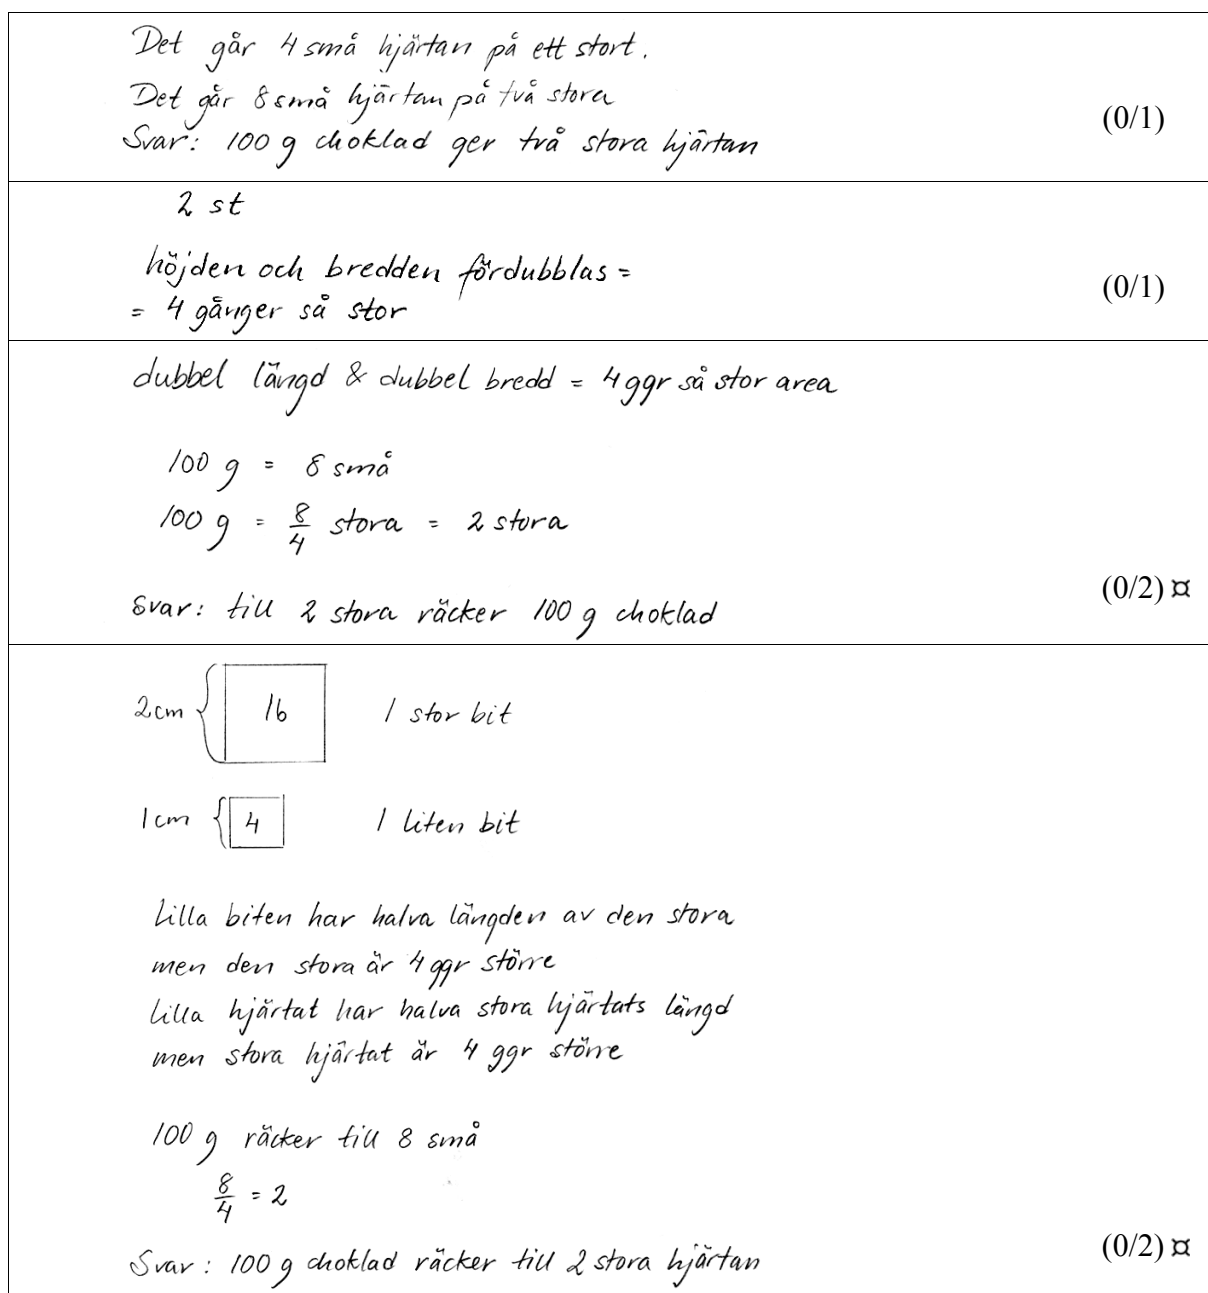 Det går 4 små hjärtan på ett stort.
Det går 8 små hjärtan på två stora
Svar: 100 g choklad ger två stora hjärtan
(0/1)
2 st
höjden och bredden fördubblas =
= 4 gånger så stor
(0/1)
dubbel längd & dubbel bredd = 4 ggr så stor area
100 g = 8 små
100 g = 8/4 stora = 2 stora
Svar: till 2 stora räcker 100 g choklad
(0/2) ¤
2 cm 16 1 stor bit
1 cm 4 1 liten bit
Lilla biten har halva längden av den stora
men den stora är 4 ggr större
Lilla hjärtat har halva stora hjärtats längd
men stora hjärtat är 4 ggr större
100 g räcker till 8 små
8/4 = 2
Svar: 100 g choklad räcker till 2 stora hjärtan
(0/2) ¤